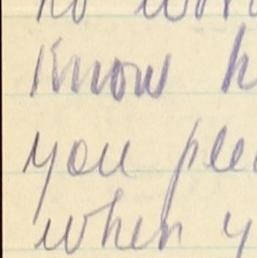 know h
you plea
when y